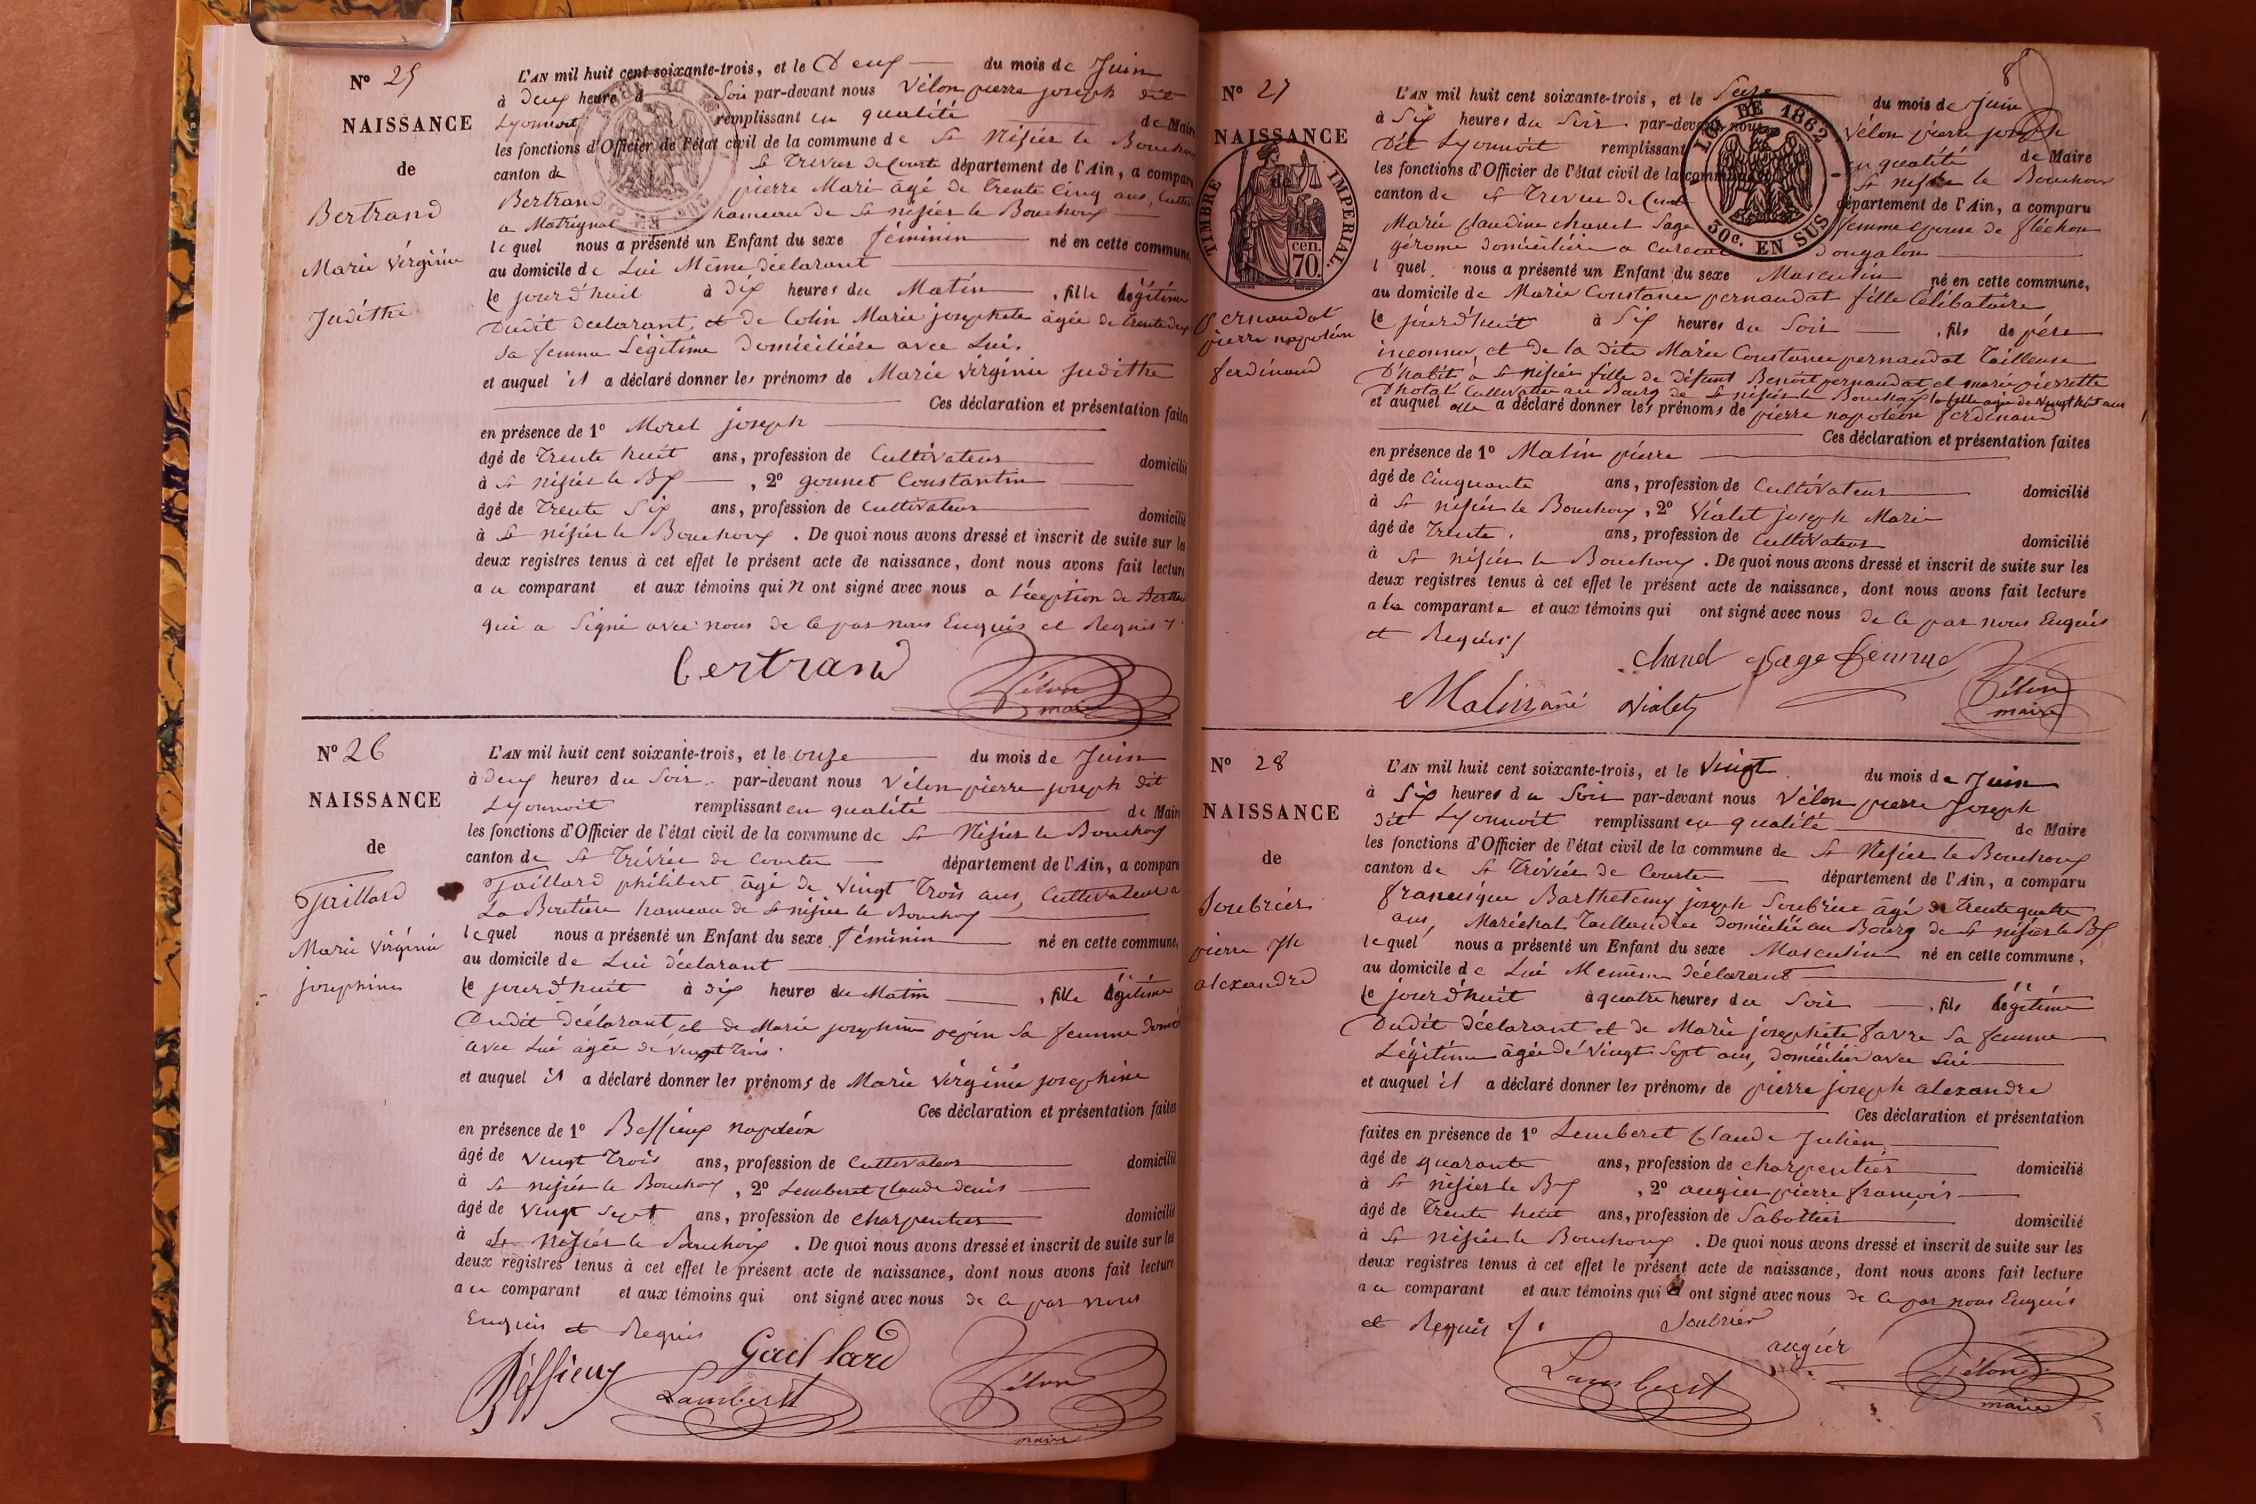 N° 25
NAISSANCE
de
Bertrand
Marie Virginie
Judithe
L'AN mil huit cent soixante-trois, et le Deux du mois de Juin
à Deux heures d Soir par-devant nous Vélon pierre joseph dit
Lyonnoit remplissant en qualité de Maire
les fonctions d'Officier de l'état civil de la commune de St Nisier le Bouchoux
canton de St Trivier de Courte département de l'Ain, a comparu
Bertrand pierre Marie âgé de trente cinq ans,
a Matrignat hameau de St nisier le Bouchoux
lequel nous a présenté un Enfant du sexe féminin né en cette commune,
au domicile de Lui Même déclarant
le jourd'huit à dix heures du Matin, fille légitime
Dudit déclarant, et de Colin Marie josephete âgée de trente deux
sa femme Légitime domiciliére avec Lui.
et auquel il a déclaré donner les prénoms de Marie virginie Judithe
Ces déclaration et présentation faites
en présence de 1° Morel joseph
âgé de trente huit ans, profession de Cultivateur domicilié
à St nisier le Bx, 2° gounet Constantin
âgé de Trente Six ans, profession de cultivateur domicilié
à St nisier le Bouchoux. De quoi nous avons dressé et inscrit de suite sur les
deux registres tenus à cet effet le présent acte de naissance, dont nous avons fait lecture
au comparant et aux témoins qui n ont signé avec nous a l'éxeption de
qui a Signé avec nous de ce par nous Enquis et Requis
bertrand
Vélon
maire
N° 26
NAISSANCE
de
Gaillard
Marie virginie
josephine
L'AN mil huit cent soixante-trois, et le onze du mois de Juin
à deux heures du Soir par-devant nous Vélon pierre joseph dit
Lyonnoit remplissant en qualité de Maire
les fonctions d'Officier de l'état civil de la commune de St Nisier le Bouchoux
canton de St Trivier de Courte département de l'Ain, a comparu
Gaillard philibert âgé de vingt Trois ans, Cultivateur a
La Boutiere hameau de St nisier le Bouchoux
lequel nous a présenté un Enfant du sexe féminin né en cette commune,
au domicile de Lui déclarant
le jourd'huit à dix heures du Matin, fille légitime
Dudit déclarant et de Marie josephine pepin sa femme
avec Lui âgée de vingt trois.
et auquel il a déclaré donner les prénoms de Marie virginie josephine
Ces déclaration et présentation faites
en présence de 1° Beffieux napoléon
âgé de vingt Trois ans, profession de Cultivateur domicilié
à St nisier le Bouchoux, 2° Lemberet Claude denis
âgé de vingt sept ans, profession de charpentier domicilié
à St Nisier le Bouchoux. De quoi nous avons dressé et inscrit de suite sur les
deux registres tenus à cet effet le présent acte de naissance, dont nous avons fait lecture
au comparant et aux témoins qui ont signé avec nous de ce par nous
Enquis et Requis
Gaillard
Béffieux
Lamberet
Vélon
maire
8
N° 27
NAISSANCE
de
TIMBRE IMPERIAL.
cen.
70.
pernaudat
pierre napoléon
ferdinand
LOI DE 1862
30c. EN SUS
L'AN mil huit cent soixante-trois, et le Seize du mois de Juin
à Six heures du Soir par-devant nous Vélon pierre joseph
Dit Lyonnoit remplissant en qualité de Maire
les fonctions d'Officier de l'état civil de la commune St nisier le Bouchoux
canton de St Trivier de Court département de l'Ain, a comparu
Marie Claudine chanel Sage femme epouse de fléchon
gérome domiciliére a dongalon
l quel nous a présenté un Enfant du sexe Masculin né en cette commune,
au domicile de Marie Constance pernaudat fille Célibataire
le jourd'huit à Six heures du Soir, fils de pére
inconnu, et de la dite Marie Constance pernaudat Tailleuse
D'habit a St nisier fille de défunt Benoit pernaudat et marie pierrette
Chotat Cultivatrice au Bourg de St nisier le Bouchoux la fille agée de Vingt huit ans
et auquel elle a déclaré donner les prénoms de pierre napoléon ferdinand
Ces déclaration et présentation faites
en présence de 1° Matin pierre
âgé de Cinquante ans, profession de Cultivateur domicilié
à St nisier le Bouchoux, 2° Vialet joseph Marie
âgé de Trente ans, profession de Cultivateur domicilié
à St nisier le Bouchoux. De quoi nous avons dressé et inscrit de suite sur les
deux registres tenus à cet effet le présent acte de naissance, dont nous avons fait lecture
a la comparante et aux témoins qui ont signé avec nous de ce par nous Enquis
et Requis
chanel Sage femme
Matin ainé
Vialet
Vélon
maire
N° 28
NAISSANCE
de
Soubrier
pierre jph
alexandre
L'AN mil huit cent soixante-trois, et le Vingt du mois de Juin
à Six heures du Soir par-devant nous Vélon pierre Joseph
dit Lyonnoit remplissant en qualité de Maire
les fonctions d'Officier de l'état civil de la commune de St Nisier le Bouchoux
canton de St Trivier de Courte département de l'Ain, a comparu
francisque Barthelemy joseph Soubrier âgé de trente quatre
ans, Maréchal Taillandier domicilié au Bourg de St nisier le Bx
lequel nous a présenté un Enfant du sexe Masculin né en cette commune,
au domicile de Lui Memême déclarant
le jourd'huit à quatre heures du Soir, fils légitime
Dudit déclarant et de Marie josephete favre sa femme
Légitime âgée de vingt sept ans, domiciliée avec Lui
et auquel il a déclaré donner les prénoms de pierre joseph alexandre
Ces déclaration et présentation
faites en présence de 1° Lemberet Claude Julien
âgé de quarante ans, profession de charpentier domicilié
à St nisier le Bx, 2° augier pierre françois
âgé de Trente huit ans, profession de Sabottier domicilié
à St nisier le Bouchoux. De quoi nous avons dressé et inscrit de suite sur les
deux registres tenus à cet effet le présent acte de naissance, dont nous avons fait lecture
au comparant et aux témoins qui ont signé avec nous de ce par nous Enquis
et Requis
Soubrier
augier
Lamberet
Vélon
maire